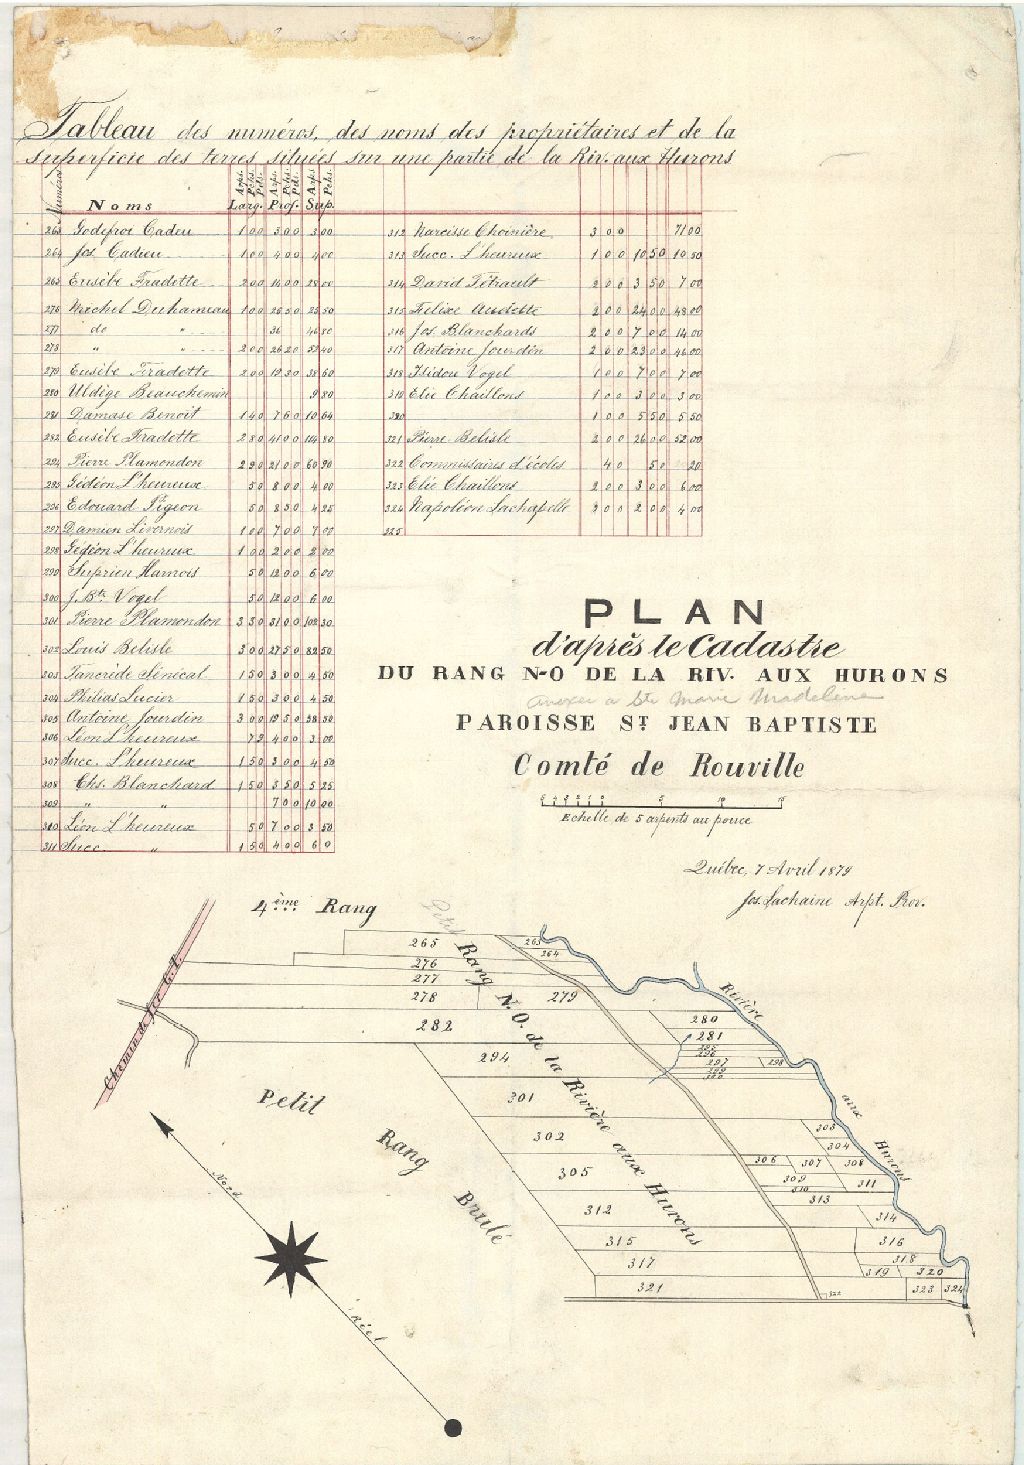 Tableau des numéros, des noms des propriétaires et de la
superficie des terres situées sur une partie de la Riv. aux Hurons
Numéros Noms Arps. Pchs. Pds. Larg. Arps. Pchs. Pds. Prof. Arps. Pchs. Sup.
263 Godefroi Cadeu 1 00 3 00 3 00
264 Jos. Cadieu 1 00 4 00 4 00
265 Eusèbe Fradette 2 00 14 00 28 00
276 Michel Duhameau 1 00 25 50 25 50
277 do " 36 46 80
278 " " 2 00 26 20 52 40
279 Eusèbe Fradette 2 00 19 30 38 60
280 Uldège Beauchemin 9 80
281 Damase Benoit 1 40 7 60 10 64
282 Eusèbe Fradette 2 80 41 00 114 80
294 Pierre Plamondon 2 90 21 00 60 90
295 Gédéon L'heureux 50 8 00 4 00
296 Edouard Pigeon 50 8 50 4 25
297 Damien Livernois 1 00 7 00 7 00
298 Gédéon L'heureux 1 00 2 00 2 00
299 Suprien Hamois 50 12 00 6 00
300 J. Bte. Vogel 50 12 00 6 00
301 Pierre Plamondon 3 30 31 00 102 30
302 Louis Belisle 3 00 27 50 82 50
303 Tancrède Sénécal 1 50 3 00 4 50
304 Philias Lucier 1 50 3 00 4 50
305 Antoine Jourdin 3 00 19 50 58 50
306 Léon L'heureux 75 4 00 3 00
307 Succ. L'heureux 1 50 3 00 4 50
308 Chs. Blanchard 1 50 3 50 5 25
309 " " 7 00 10 00
310 Léon L'heureux 50 7 00 3 50
311 Succ. " 1 50 4 00 6 0
312 Narcisse Choinière 3 00 71 00
313 Succ. L'heureux 1 00 10 50 10 50
314 David Tétrault 2 00 3 50 7 00
315 Felixe Audette 2 00 24 00 48 00
316 Jos. Blanchards 2 00 7 00 14 00
317 Antoine Jourdin 2 00 23 00 46 00
318 Isidou Vogel 1 00 7 00 7 00
319 Elie Chaillons 1 00 3 00 3 00
320 1 00 5 50 5 50
321 Pierre Belisle 2 00 26 00 52 00
322 Commissaires d'écoles 40 50 20
323 Elie Chaillons 2 00 3 00 6 00
324 Napoléon Lachapelle 2 00 2 00 4 00
325
PLAN
d'après le Cadastre
DU RANG N-O DE LA RIV. AUX HURONS
annexer a Ste Marie Madeleine
PAROISSE ST. JEAN BAPTISTE
Comté de Rouville
5 4 3 2 1 0 5 10 15
Echelle de 5 arpents au pouce
Québec, 7 Avril 1879
Jos. Lachaine Arpt. Prov.
4ème Rang
Chemin de fer G.T.
Petit Rang Brulé
Rang N.O. de la Rivière aux Hurons
Rivière aux Hurons
265
263
264
276
277
278
279
282
280
281
295
296
297
298
299
300
294
301
302
303
304
305
306
307
308
309
310
311
312
313
314
315
316
317
318
319
320
321
322
323
324
Nord